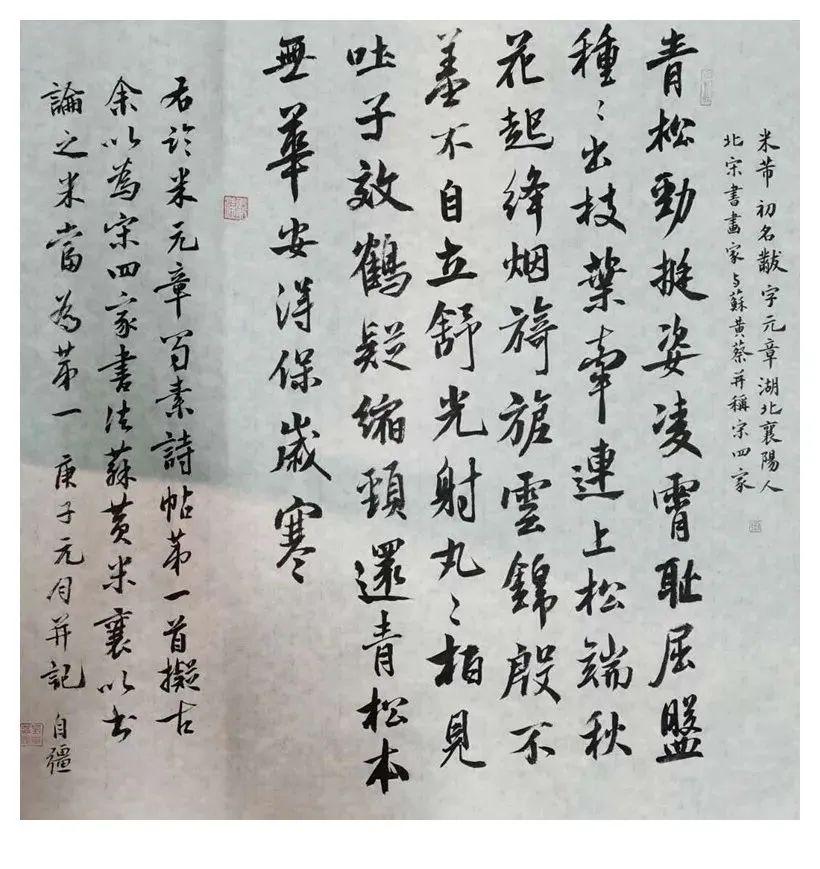 米芾初名黻字元章湖北襄陽人
北宋書畫家与蘇黃蔡并稱宋四家
青松勁挺姿凌霄耻屈盤
種〻出枝葉牽連上松端秋
花起絳烟旖旎雲錦殷不
羞不自立舒光射丸〻柏見
吐子效鶴疑縮頸還青松本
無華安得保歲寒
右臨米元章蜀素詩帖第一首擬古
余以為宋四家書法蘇黃米襄以書
論之米當為第一 庚子元月并記 自彊